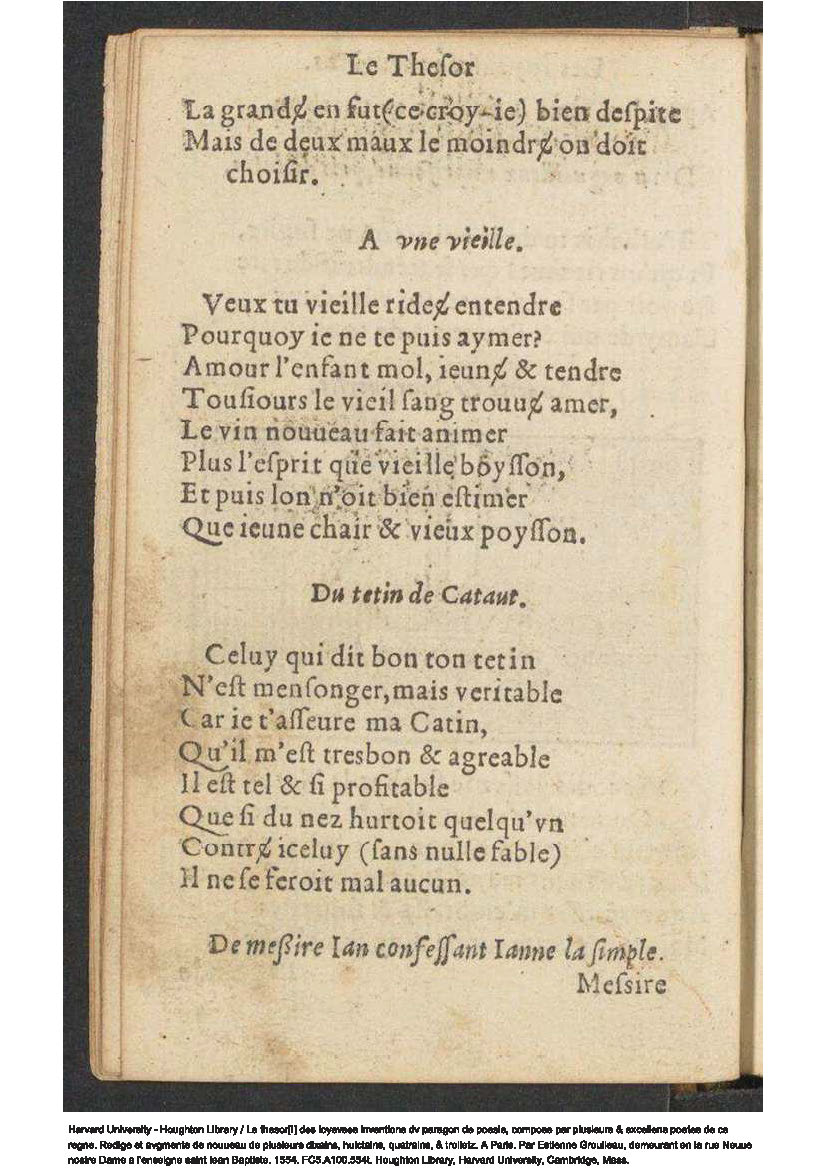 Le Theſor
La grandɇ en fut (ce croy-ie) bien deſpite
Mais de deux maux le moindrɇ on doit
choiſir.
A vne vieille.
Veux tu vieille rideɇ entendre
Pourquoy ie ne te puis aymer?
Amour l'enfant mol, ieunɇ & tendre
Touſiours le vieil ſang trouuɇ amer,
Le vin nouueau fait animer
Plus l'eſprit que vieille boyſſon,
Et puis lon n'oit bien eſtimer
Que ieune chair & vieux poyſſon.
Du tetin de Cataut.
Celuy qui dit bon ton tetin
N'eſt menſonger, mais veritable
Car ie t'aſſeure ma Catin,
Qu'il m'eſt tresbon & agreable
Il eſt tel & ſi profitable
Que ſi du nez hurtoit quelqu'vn
Contrɇ iceluy (ſans nulle fable)
Il ne ſe feroit mal aucun.
De meßire Ian confeſſant Ianne la ſimple.
Meſsire
Harvard University - Houghton Library / Le thesor[i] des ioyeuses inuentions dv paragon de poesie, compose par plusieurs & excellens poetes de ce
regne. Redige et avgmente de nouueau de plusieurs dixains, huictains, quatrains, & trolletz. A Paris. Par Estienne Groulleau, demeurant en la rue Neuue
nostre Dame a l'enseigne saint Iean Baptiste. 1554. FC5.A100.554t. Houghton Library, Harvard University, Cambridge, Mass.